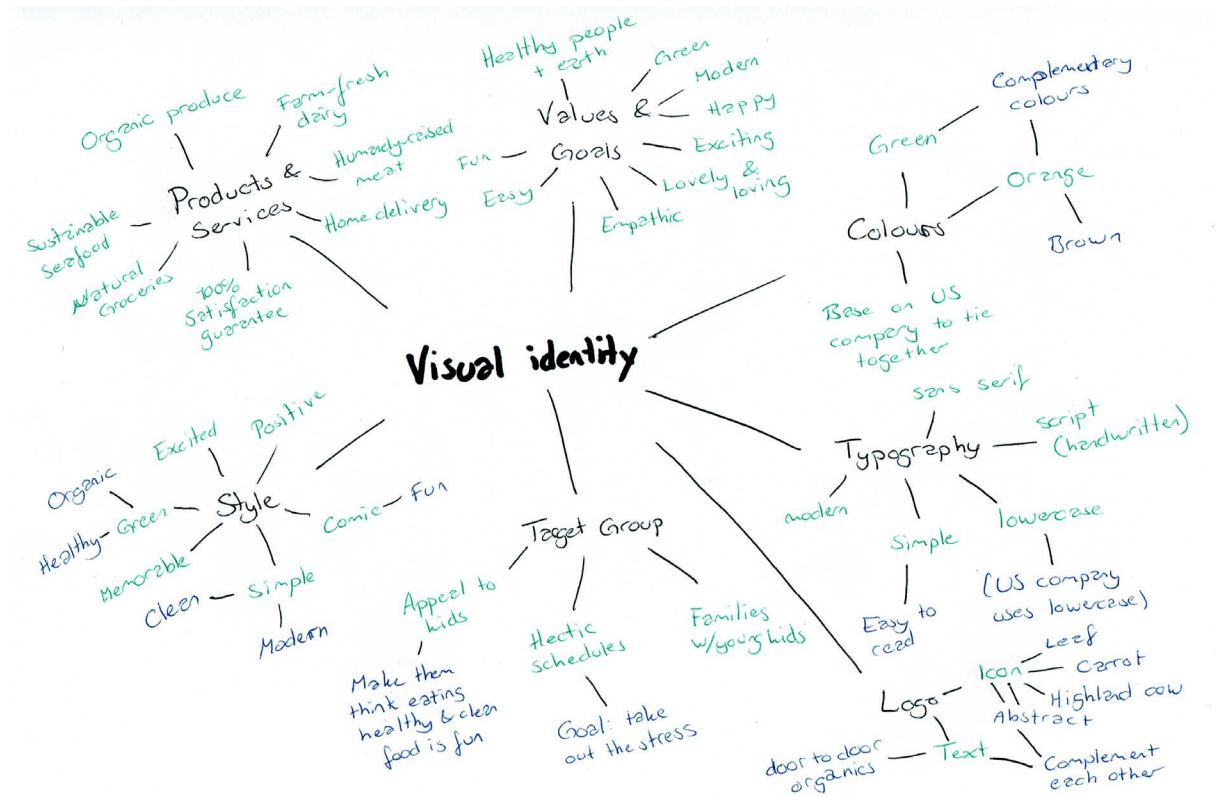 Visual identity
Products &
Services
Organic produce
Farm-fresh
dairy
Humanely-raised
meat
Home delivery
100%
Satisfaction
guarantee
Natural
Groceries
Sustainable
Seafood
Values &
Goals
Healthy people
+ earth
Green
Modern
Happy
Exciting
Lovely &
loving
Empathic
Easy
Fun
Colours
Green
Complementary
colours
Orange
Brown
Base on US
company to tie
together
Typography
sans serif
script
(handwritten)
lowercase
(US company
uses lowercase)
Simple
Easy to
read
modern
Logo
Icon
Leaf
Carrot
Highland cow
Abstract
Complement
each other
Text
door to door
organics
Target Group
Appeal to
kids
Make them
think eating
healthy & clean
food is fun
Hectic
schedules
Goal: take
out the stress
Families
w/young kids
Style
Excited
Positive
Comic
Fun
Simple
Modern
Clean
Memorable
Green
Organic
Healthy